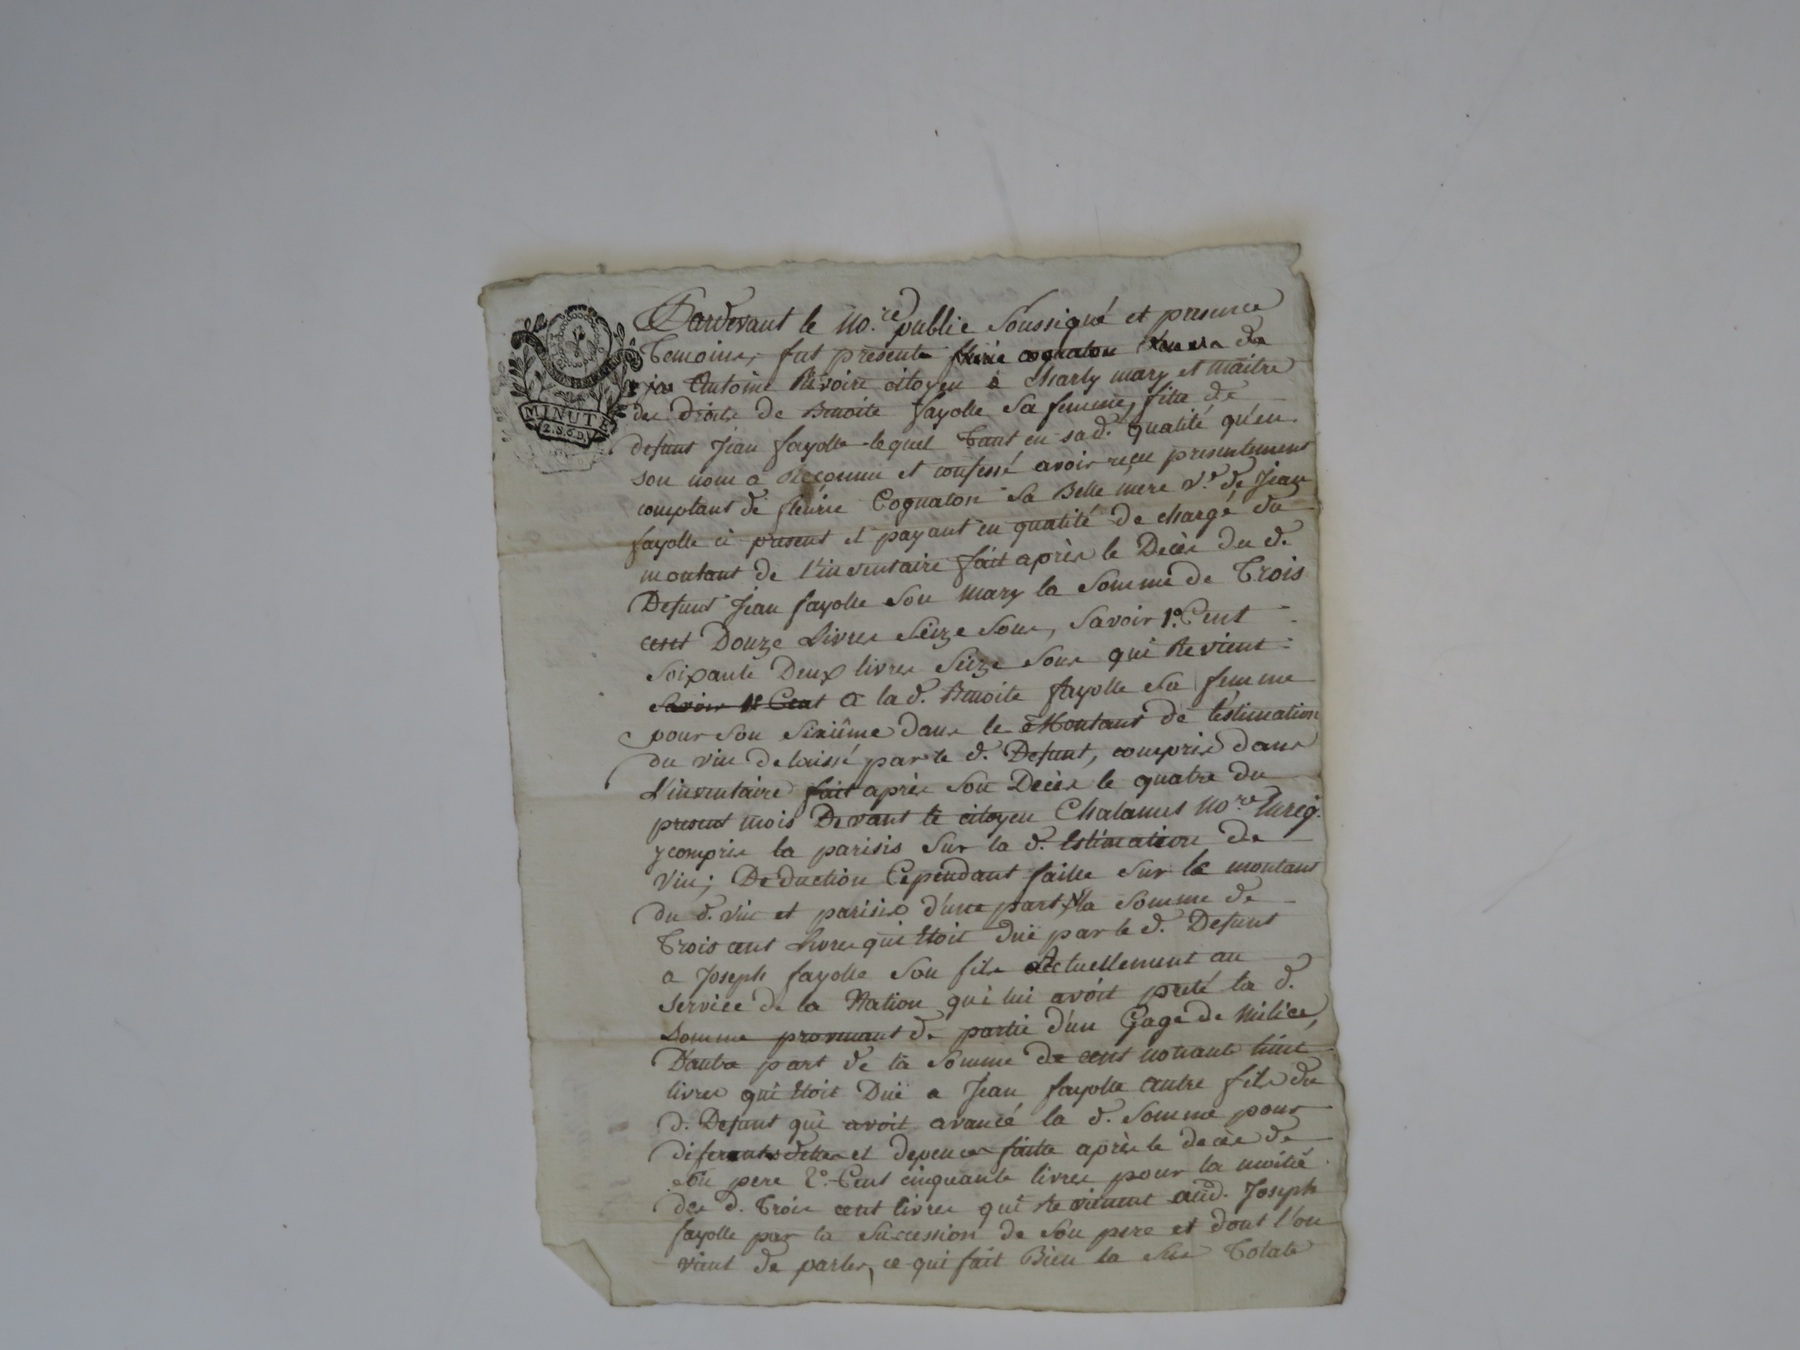 MINUTE
2. S. 6. D.
Pardevant le No.re public Soussigné et presence
Temoins, fut présente
Antoine Revoire citoyen à Charly mary et maitre
des droits de Benoite fayolle Sa femme, fille de
defunt Jean fayolle lequel Tant en sa d. qualité qu'en
son nom a Reconnu et confessé avoir reçu presentement
comptant de fleurie Cognaton Sa Belle mere V.e de Jean
fayolle ci present et payant en qualité de chargé du
montant de l'inventaire fait après le Decès du d.
Defunt Jean fayolle Son mary la Somme de Trois
cent Douze Livres Seize Sous, Savoir 1.o Cent
Soixante Deux livres Seize Sous qui Revient
Savoir 1.o Cent a la d. Benoite fayolle Sa femme
pour Son Sixiême dans le Montant de l'estimation
du vin delaissé par le d. Defunt, compris dans
L'inventaire fait après Son Decès le quatre du
present mois Devant le citoyen Chalamel No.re Enreg.
y compris la parisis Sur la d. Estimation de
Vin; Deduction Cependant faitte Sur le montant
du d. vin et parisis d'une part la Somme de
Trois cent Livres qui Etoit Duë par le d. Defunt
a Joseph fayolle Son fils actuellement au
Service de la Nation qui lui avoit preté la d.
Somme provenant de partie d'un Gage de Milice,
D'autre part de la Somme de cent nonante huit
livres qui Etoit Duë a Jean fayolle autre fils du
d. Defunt qui avoit avancé la d. Somme pour
diferents dettes et depences faitte après le decès de
Son pere 2.o Cent cinquante livres pour la moitié
des d. Trois cent livres qui Revienent aud. Joseph
fayolle par la Succession de Son pere et dont l'on
vient de parler, ce qui fait Bien la Sus Totale